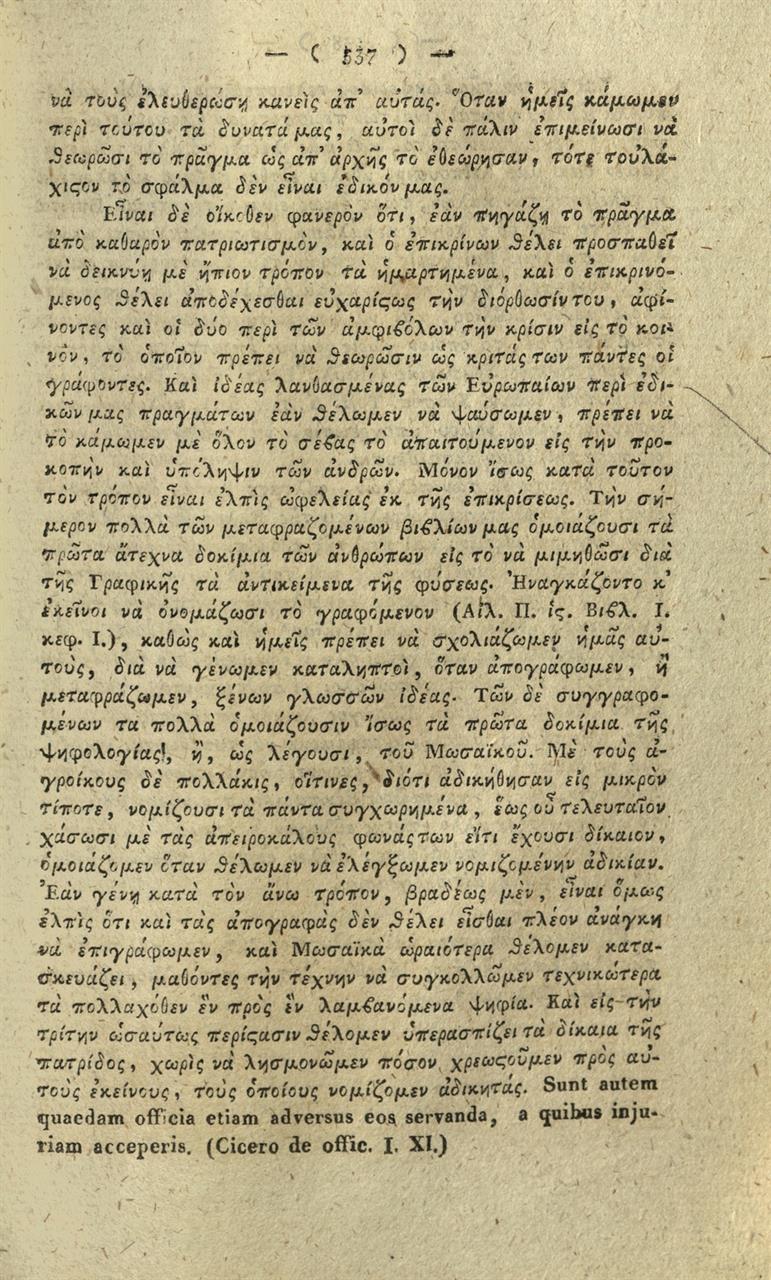 — ( 537 ) —
νὰ τοὺς ἐλευθερώσῃ κανεὶς ἀπ’ αὐτάς. Ὅταν ἡμεῖς κάμωμεν
περὶ τούτου τὰ δυνατά μας, αὐτοὶ δὲ πάλιν ἐπιμείνωσι νὰ
θεωρῶσι τὸ πρᾶγμα ὡς ἀπ’ ἀρχῆς τὸ ἐθεώρησαν, τότε τουλά-
χιςον τὸ σφάλμα δὲν εἶναι ἐδικόν μας.
Εἶναι δὲ οἴκοθεν φανερὸν ὅτι, ἐὰν πηγάζῃ τὸ πρᾶγμα
ἀπὸ καθαρὸν πατριωτισμὸν, καὶ ὁ ἐπικρίνων θέλει προσπαθεῖ
νὰ δεικνύῃ μὲ ἤπιον τρόπον τὰ ἡμαρτημένα, καὶ ὁ ἐπικρινό-
μενος θέλει ἀποδέχεσθαι εὐχαρίςως τὴν διόρθωσίν του, ἀφί-
νοντες καὶ οἱ δύο περὶ τῶν ἀμφιβόλων τὴν κρίσιν εἰς τὸ κοι-
νὸν, τὸ ὁποῖον πρέπει νὰ θεωρῶσιν ὡς κριτάς των πάντες οἱ
γράφοντες. Καὶ ἰδέας λανθασμένας τῶν Εὐρωπαίων περὶ ἐδι-
κῶν μας πραγμάτων ἐὰν θέλωμεν νὰ ψαύσωμεν, πρέπει νὰ
τὸ κάμωμεν μὲ ὅλον τὸ σέβας τὸ ἀπαιτούμενον εἰς τὴν προ-
κοπὴν καὶ ὑπόληψιν τῶν ἀνδρῶν. Μόνον ἴσως κατὰ τοῦτον
τὸν τρόπον εἶναι ἐλπὶς ὠφελείας ἐκ τῆς ἐπικρίσεως. Τὴν σή-
μερον πολλὰ τῶν μεταφραζομένων βιβλίων μας ὁμοιάζουσι τὰ
πρῶτα ἄτεχνα δοκίμια τῶν ἀνθρώπων εἰς τὸ νὰ μιμηθῶσι διὰ
τῆς Γραφικῆς τὰ ἀντικείμενα τῆς φύσεως. Ἠναγκάζοντο κ’
ἐκεῖνοι νὰ ὀνομάζωσι τὸ γραφόμενον (Αἰλ. Π. ἱς. Βιβλ. Ι.
κεφ. Ι.), καθὼς καὶ ἡμεῖς πρέπει νὰ σχολιάζωμεν ἡμᾶς αὐ-
τοὺς, διὰ νὰ γένωμεν καταληπτοὶ, ὅταν ἀπογράφωμεν, ἢ
μεταφράζωμεν, ξένων γλωσσῶν ἰδέας. Τῶν δὲ συγγραφο-
μένων τα πολλὰ ὁμοιάζουσιν ἴσως τὰ πρῶτα δοκίμια τῆς
ψηφολογίας!, ἢ, ὡς λέγουσι, τοῦ Μωσαϊκοῦ. Μὲ τοὺς ἀ-
γροίκους δὲ πολλάκις, οἵτινες, διότι ἀδικήθησαν εἰς μικρὸν
τίποτε, νομίζουσι τὰ πάντα συγχωρημένα, ἕως οὗ τελευταῖον
χάσωσι μὲ τὰς ἀπειροκάλους φωνάς των εἴτι ἔχουσι δίκαιον,
ὁμοιάζομεν ὅταν θέλωμεν νὰ ἐλέγξωμεν νομιζομένην ἀδικίαν.
Ἐὰν γένῃ κατὰ τὸν ἄνω τρόπον, βραδέως μὲν, εἶναι ὅμως
ἐλπὶς ὅτι καὶ τὰς ἀπογραφὰς δὲν θέλει εἶσθαι πλέον ἀνάγκη
νὰ ἐπιγράφωμεν, καὶ Μωσαϊκὰ ὡραιότερα θέλομεν κατα-
σκευάζει, μαθόντες τὴν τέχνην νὰ συγκολλῶμεν τεχνικώτερα
τὰ πολλαχόθεν ἓν πρὸς ἓν λαμβανόμενα ψηφία. Καὶ εἰς τὴν
τρίτην ὡσαύτως περίςασιν θέλομεν ὑπερασπίζει τὰ δίκαια τῆς
πατρίδος, χωρὶς νὰ λησμονῶμεν πόσον χρεωςοῦμεν πρὸς αὐ-
τοὺς ἐκείνους, τοὺς ὁποίους νομίζομεν ἀδικητάς. Sunt autem
quaedam officia etiam adversus eos servanda, a quibus inju-
riam acceperis. (Cicero de offic. I. XI.)